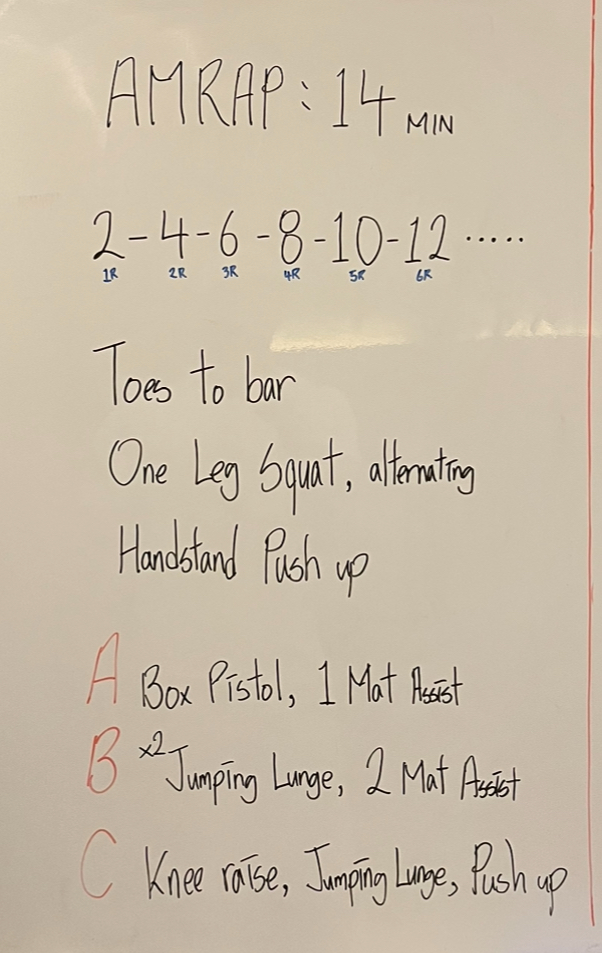 AMRAP : 14 MIN
2 - 4 - 6 - 8 - 10 - 12 .....
1R 2R 3R 4R 5R 6R
Toes to bar
One Leg Squat, alternating
Handstand Push up
A Box Pistol, 1 Mat Assist
B x2 Jumping Lunge, 2 Mat Assist
C Knee raise, Jumping Lunge, Push up